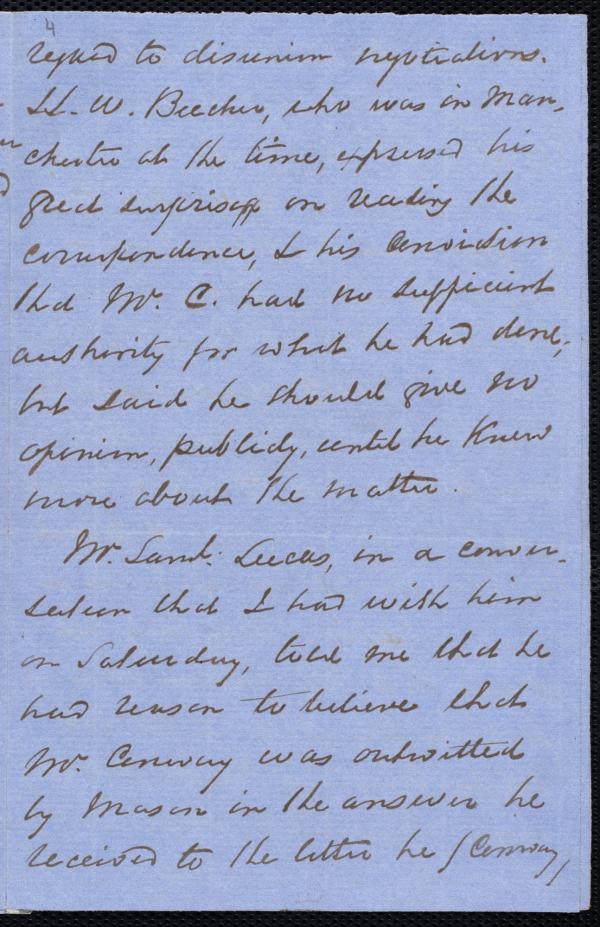 4
regard to disunion negotiations.
H. W. Beecher, who was in Man-
chester at the time, expressed his
great surprise on reading the
correspondence, & his conviction
that Mr. C. had no sufficient
authority for what he had done,
but said he should give no
opinion, publicly, until he knew
more about the matter.
Mr. Saml. Lucas, in a conver-
sation that I had with him
on Saturday, told me that he
had reason to believe that
Mr. Conway was outwitted
by Mason in the answer he
received to the letter he (Conway)